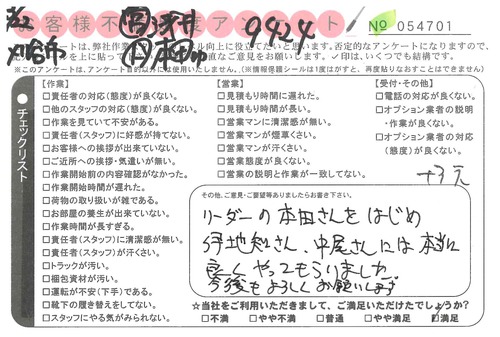 お客様不満足度アンケート
9424
No 054701
刈谷市
アンケートは、弊社作業
このアンケートは、アンケート目的以外には使用いたしません。(※情報保護シールは1度はがすと、再度貼りなおすことはできません)
チェックリスト
【作業】
□責任者の対応(態度)が良くない。
□他のスタッフの対応(態度)が良くない。
□作業を見ていて不安がある。
□責任者(スタッフ)に好感が持てない。
□お客様への挨拶が出来ていない。
□ご近所への挨拶・気遣いが無い。
□作業開始前の内容確認がなかった。
□作業開始時間が遅れた。
□荷物の取り扱いが雑である。
□お部屋の養生が出来ていない。
□作業時間が長すぎる。
□責任者(スタッフ)に清潔感が無い。
□責任者(スタッフ)が汗くさい。
□トラックが汚い。
□梱包資材が汚い。
□運転が不安(下手)である。
□靴下の履き替えをしてない。
□スタッフにやる気がみられない。
【営業】
□見積もり時間に遅れた。
□見積もり時間が長い。
□営業マンに清潔感が無い。
□営業マンが煙草くさい。
□営業マンが汗くさい。
□営業態度が良くない。
□営業の説明と作業が一致してない。
【受付・その他】
□電話の対応が良くない。
□オプション業者の説明
・作業が良くない。
□オプション業者の対応
(態度)が良くない。
その他、ご意見・ご要望等ありましたらお書き下さい。
リーダーの本田さんをはじめ
伊地知さん、中尾さんには本当に
良くやってもらいました。
今後もよろしくお願いします
☆当社をご利用いただきまして、ご満足いただけたでしょうか?
□不満 □やや不満 □普通 □やや満足 ☑満足